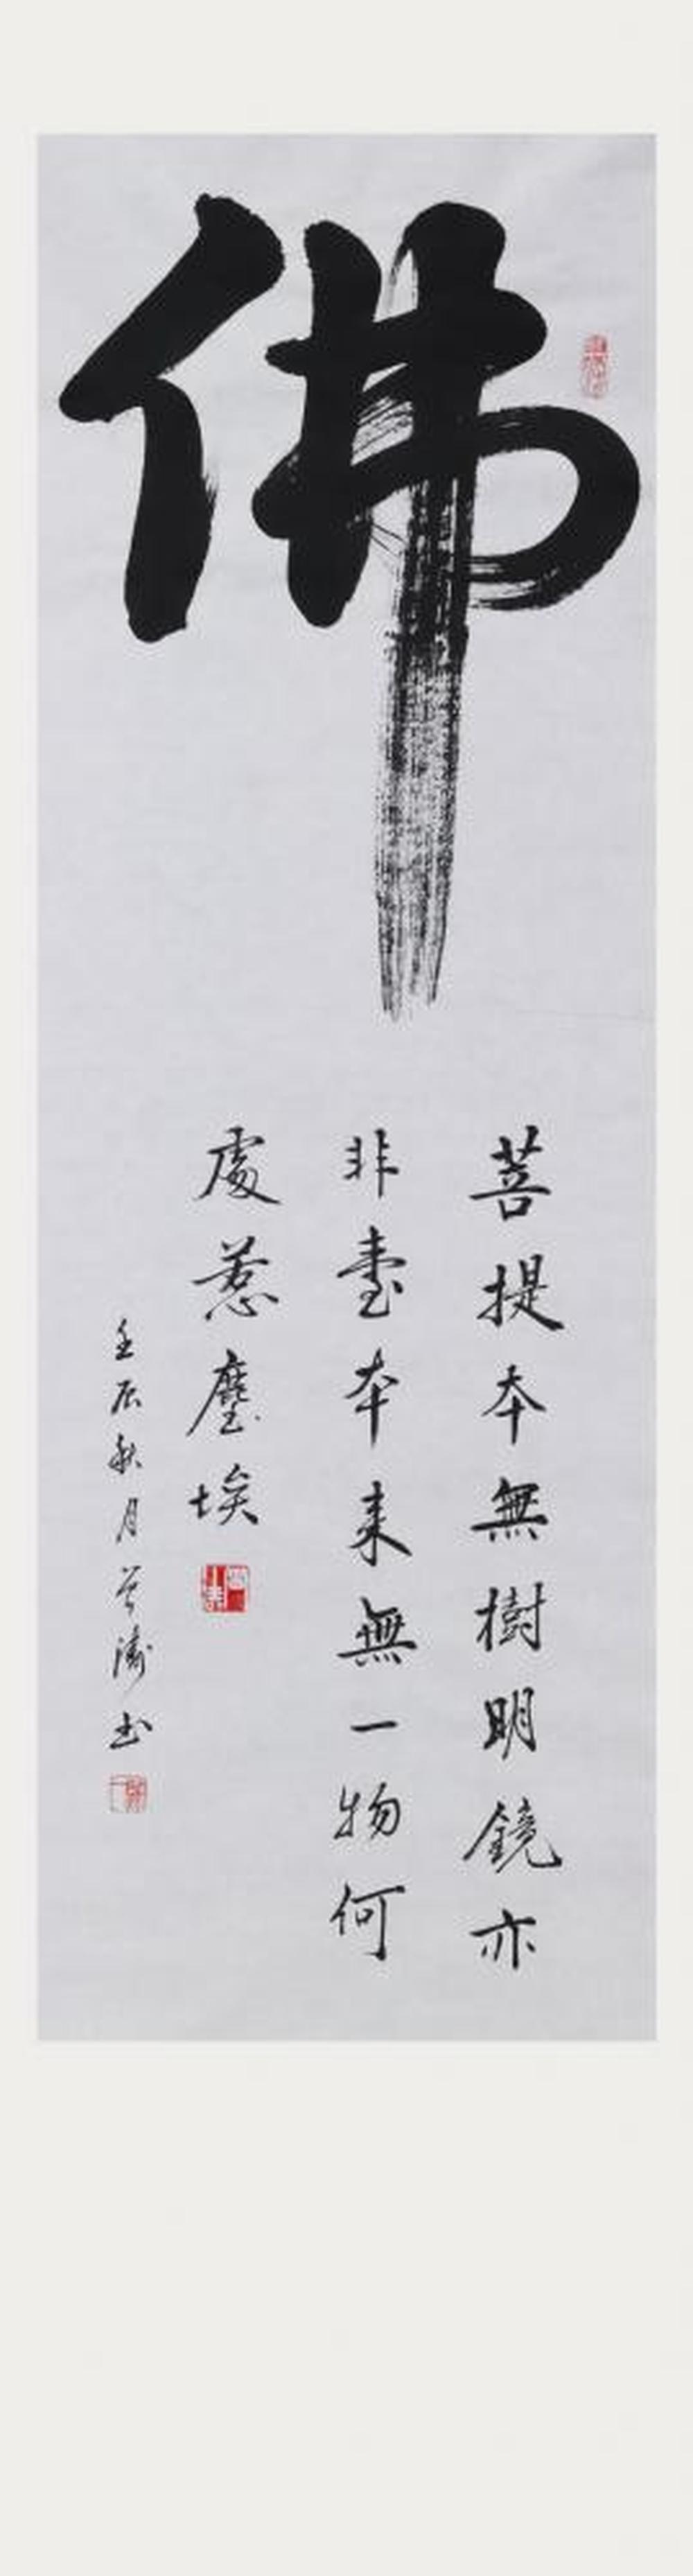 佛
菩提本無樹明鏡亦
非臺本来無一物何
處惹塵埃
壬辰秋月